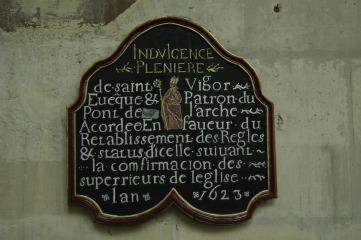 INDVLGENCE
PLENIERE
de saint Vigor
Euêque & Patron du
Pont de l'arche
Acordee En faueur du
Retablissement des Regles
& status dicelle suiuant
la comfirmacion des
superrieurs de leglise
lan 1623